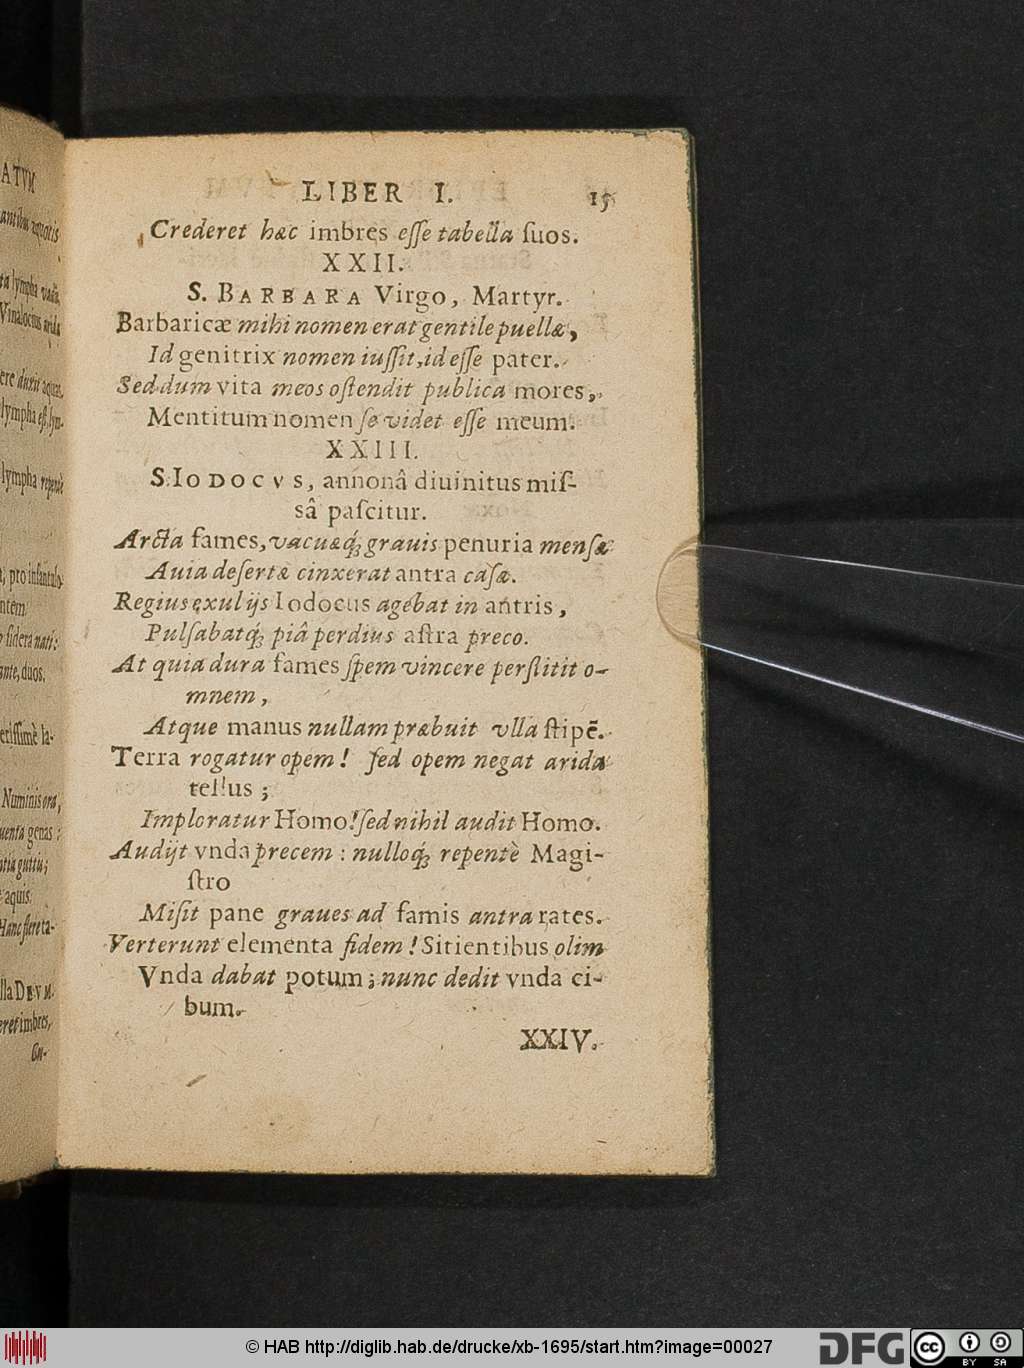 LIBER I. 15
Crederet hæc imbres eſſe tabella ſuos.
XXII.
S. BARBARA Virgo, Martyr.
Barbaricæ mihi nomen erat gentile puellæ,
Id genitrix nomen iuſſit, id eſſe pater.
Sed dum vita meos oſtendit publica mores,
Mentitum nomen ſe videt eſſe meum.
XXIII.
S. IODOCVS, annonâ diuinitus miſ-
sâ paſcitur.
Arcta fames, vacuæq́; grauis penuria menſæ
Auia deſertæ cinxerat antra caſæ.
Regius exul ijs Iodocus agebat in antris,
Pulſabatq́; piâ perdius aſtra prece.
At quia dura fames ſpem vincere perſtitit o-
mnem,
Atque manus nullam præbuit vlla ſtipē.
Terra rogatur opem! ſed opem negat arida
tellus;
Imploratur Homo! ſed nihil audit Homo.
Audijt vnda precem: nulloq́; repentè Magi-
ſtro
Miſit pane graues ad famis antra rates.
Verterunt elementa fidem! Sitientibus olim
Vnda dabat potum; nunc dedit vnda ci-
bum.
XXIV.
ATVM
lympha vadis,
lympha eſt, lym-
lympha repentè
pro infantulo
ſidera nati:
duos.
Numinis ora,
genas:
aquis.
DEVM.
imbres,
© HAB http://diglib.hab.de/drucke/xb-1695/start.htm?image=00027
DFG
cc
BY SA